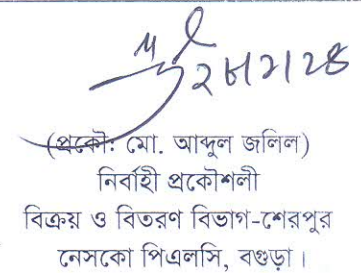 (প্রকৌ: মো. আব্দুল জলিল)
নির্বাহী প্রকৌশলী
বিক্রয় ও বিতরণ বিভাগ-শেরপুর
নেসকো পিএলসি, বগুড়া।